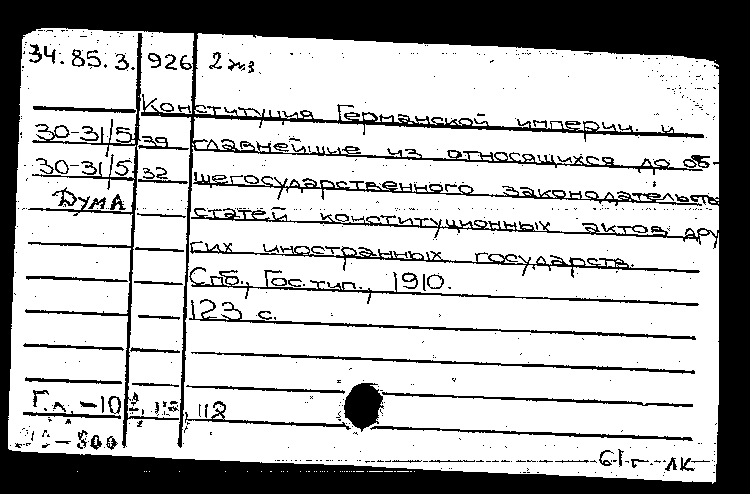 34.85.3. 926 2 экз
Конституция Германской империи и
30-31/5 39 главнейшие из относящихся до об-
30-31/5 32 щегосударственного законодательства
ДумА статей конституционных актов дру
гих иностранных государств.
Спб., Гос. тип., 1910.
123 с.
Г.л. -10 112, 118
-800
61 г ЛК